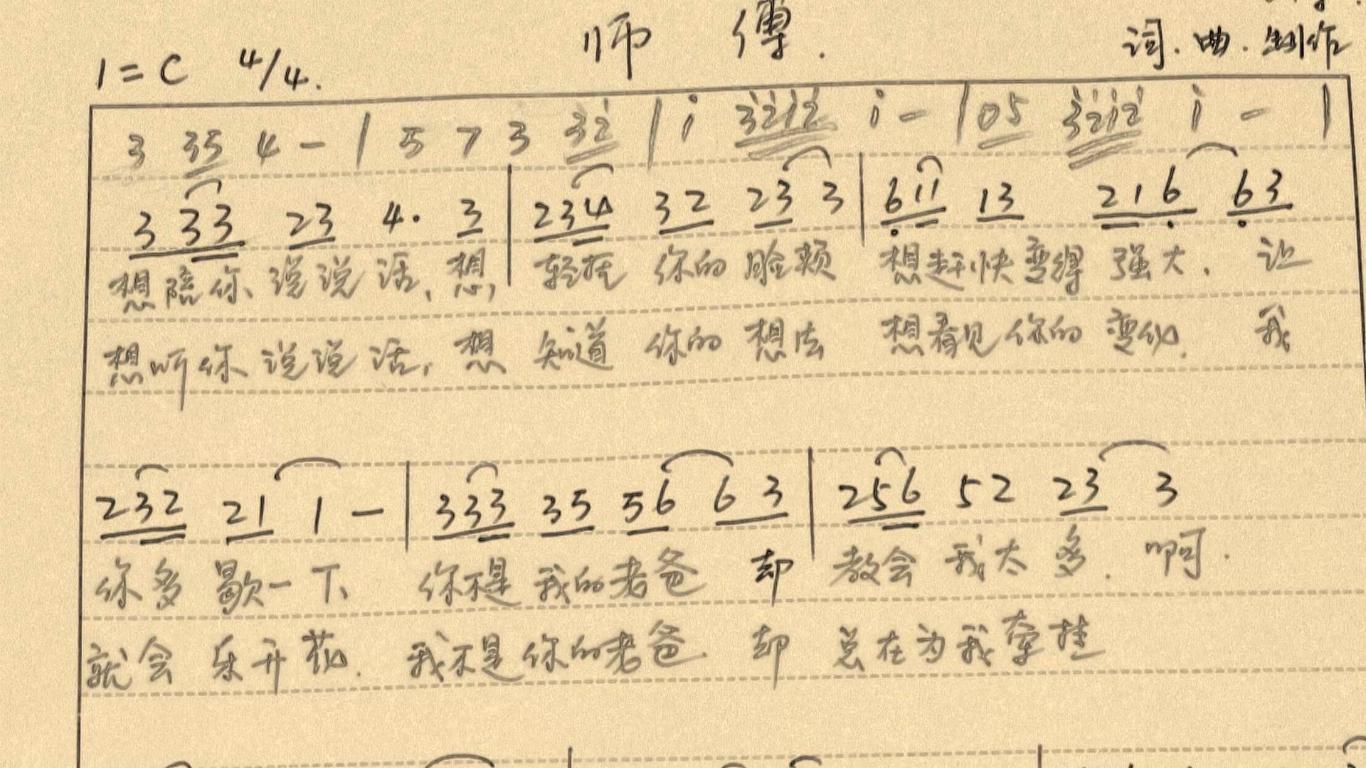 师傅.
1=C 4/4. 词.曲.制作
3 35 4 - | 5 7 3 32 | i 3212 i - | 05 3212 i - |
3 33 23 4. 3 | 234 32 23 3 | 611 13 216 63
想陪你说说话,想, 轻抚你的脸颊 想赶快变得强大. 让
想听你说说话,想知道你的想法 想看见你的变化. 我
232 21 1 - | 333 35 56 6 3 | 256 52 23 3
你多歇一下、你不是我的老爸 却教会我太多.啊.
就会乐开花.我不是你的老爸.却总在为我牵挂